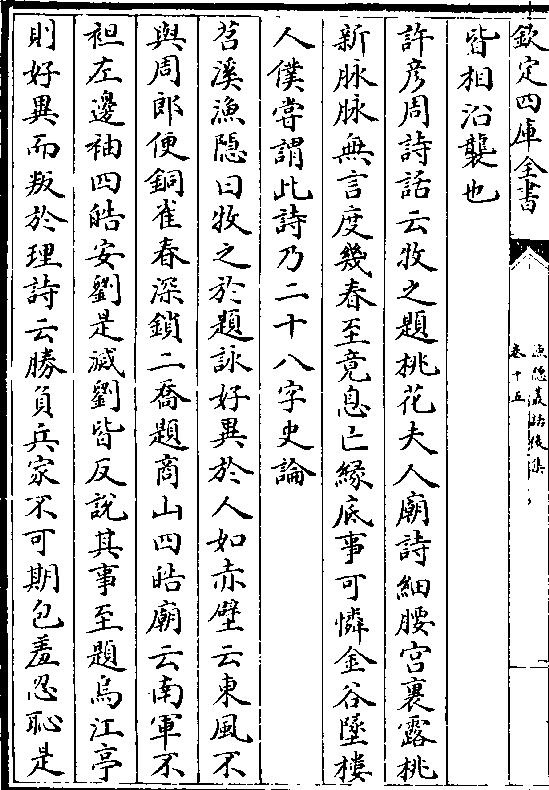 欽定四庫全書
漁隱叢話後集
卷十五
皆相沿襲也
許彦周詩話云牧之題桃花夫人廟詩細腰宫裏露桃
新脉脉無言度幾春至竟息亡縁底事可憐金谷墜樓
人僕嘗謂此詩乃二十八字史論
苕溪漁隠曰牧之於題詠好異於人如赤壁云東風不
與周郎便銅雀春深鎖二喬題商山四皓廟云南軍不
袒左邊袖四皓安劉是滅劉皆反說其事至題烏江亭
則好異而叛於理詩云勝負兵家不可期包羞忍恥是